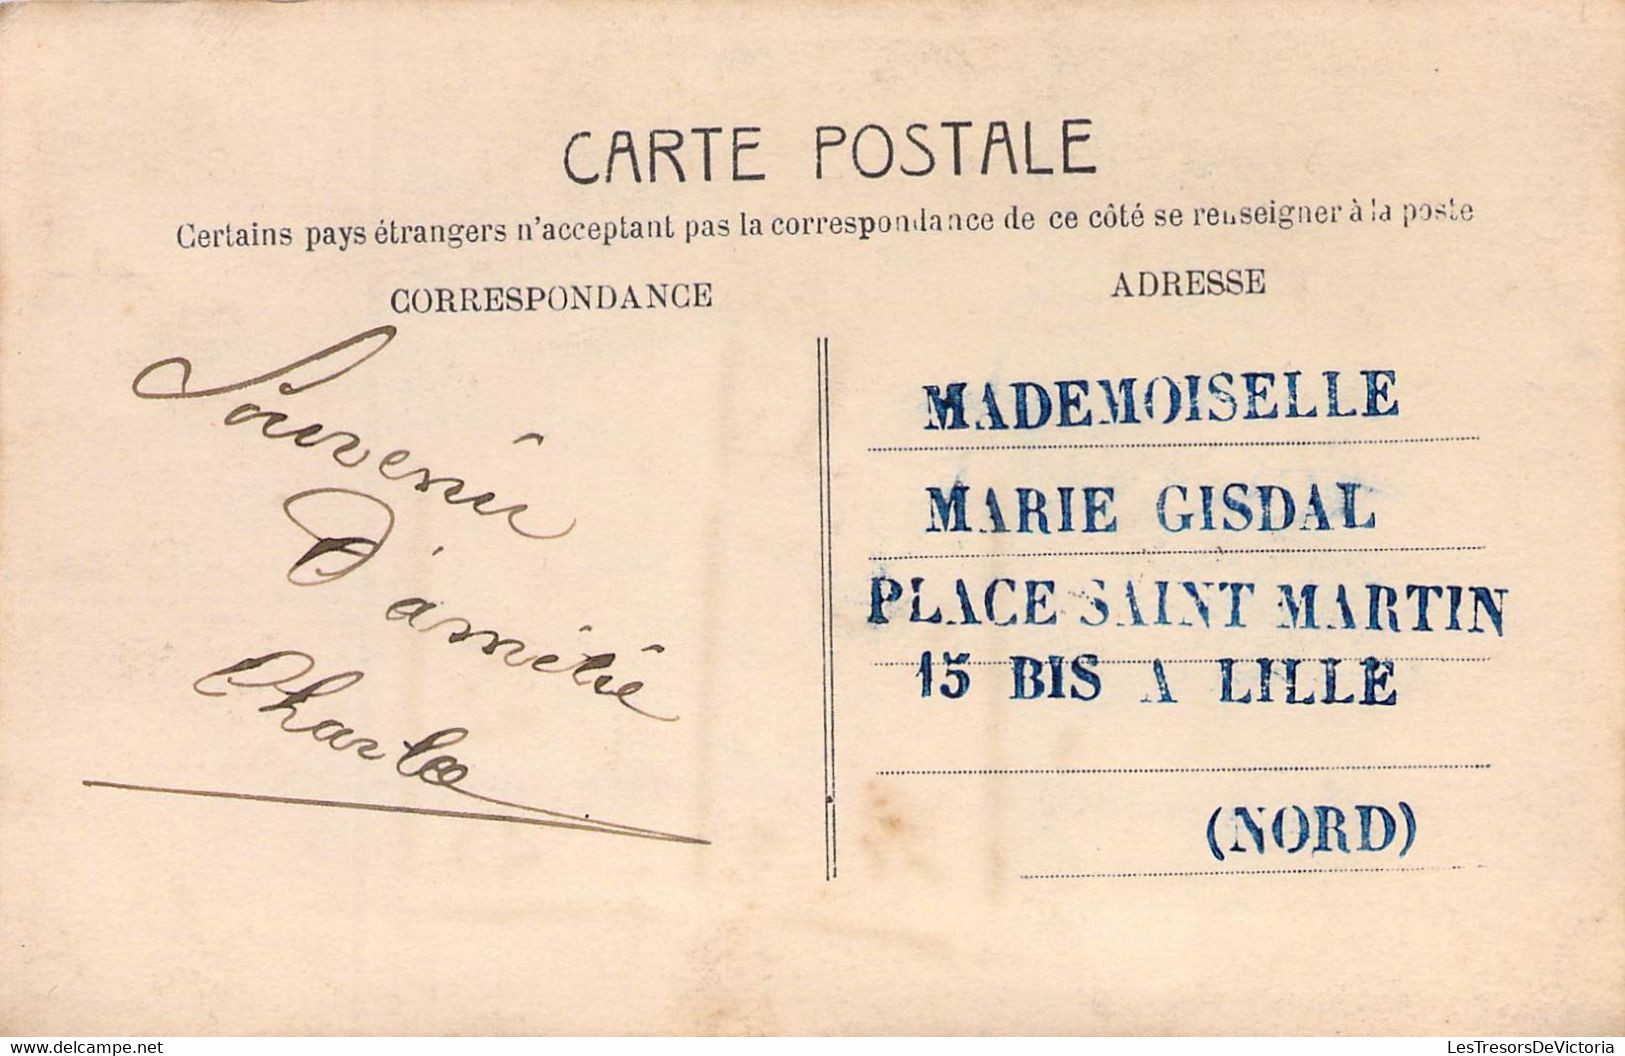 CARTE POSTALE
Certains pays étrangers n'acceptant pas la correspondance de ce côté se renseigner à la poste
CORRESPONDANCE
Souvenir
D'amitié
Charles
ADRESSE
MADEMOISELLE
MARIE GISDAL
PLACE SAINT MARTIN
15 BIS A LILLE
(NORD)
www.delcampe.net
LesTresorsDeVictoria